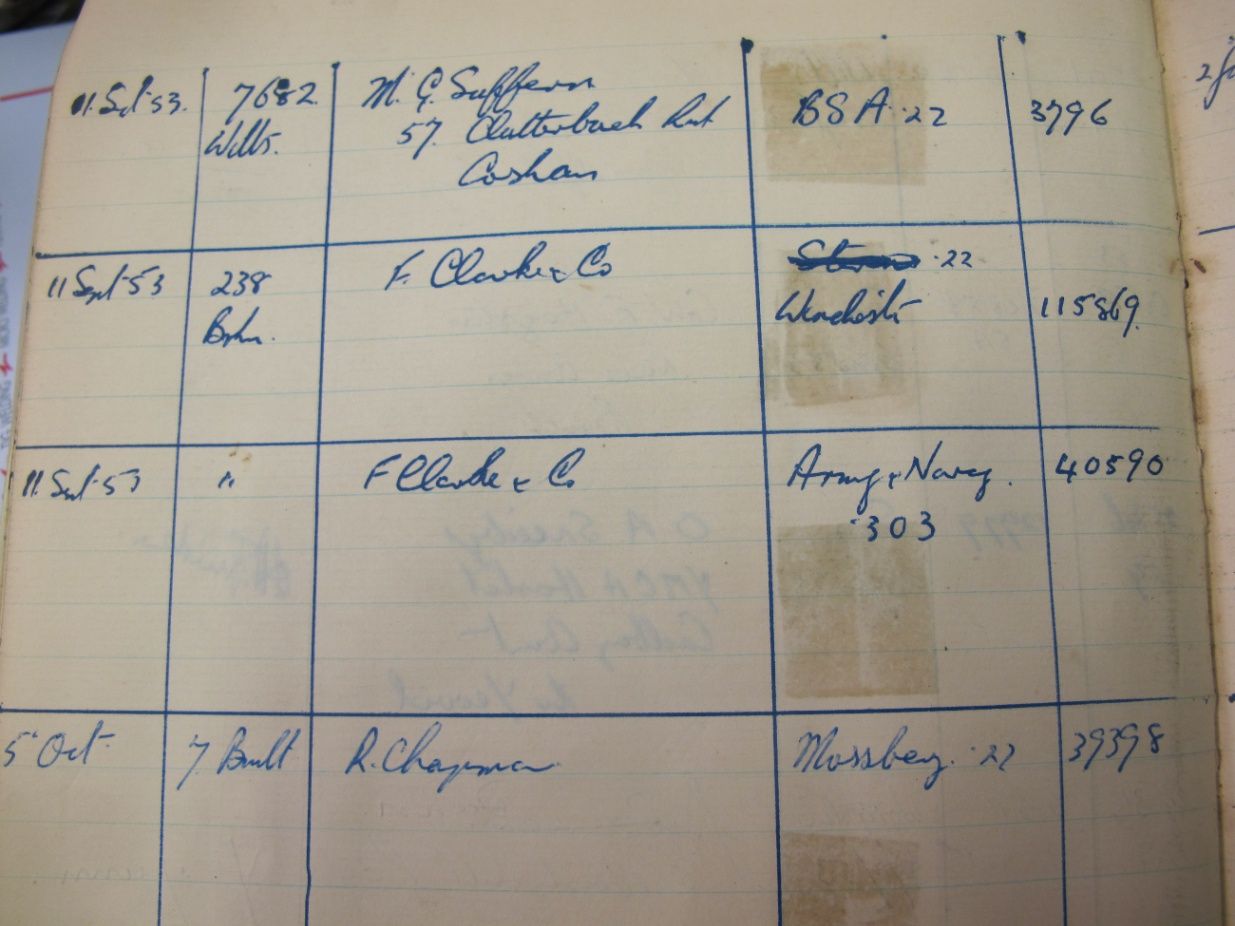 11 Sept 53. 7682 M. G. Suffern BSA .22 3796
Wilts. 57. Clutterbuck
Corsham
11 Sept 53 238 F. Clarke & Co .22
Winchester 115869.
11 Sept 53 " F Clarke & Co Army & Navy. 40590
.303
5 Oct 7. Built R. Chapman Mossberg .22 39398